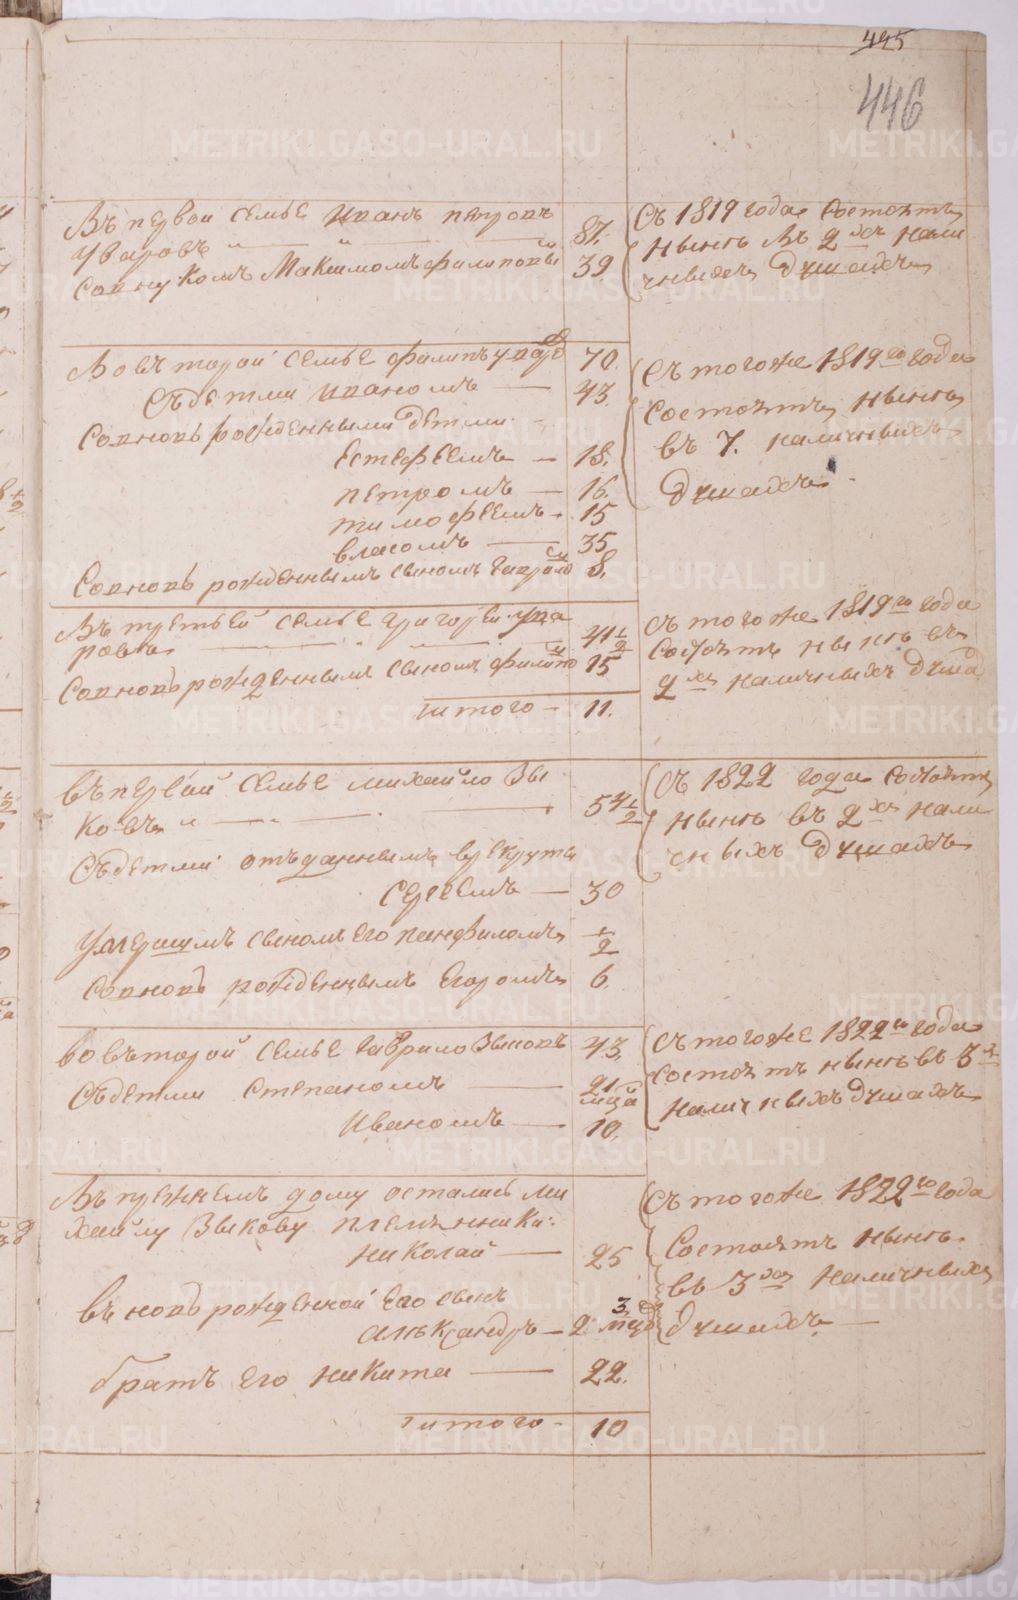 445
446
Въ первой семье Иванъ петровъ
Уваровъ 87.
Совнукомъ Максимомъ филиповы 39
Съ 1819 года состоятъ
нынѣ въ 2хъ нали
чныхъ душахъ
Вовъторой семье филипъ увар 70.
Съдетми иваномъ 43.
Совновь рожденными детми
Естефеемъ 18.
петромъ 16.
тимофеемъ 15
власомъ 35
Совновь рожденнымъ сыномъ гаврило 8.
Съ тогоже 1819го года
состоятъ нынѣ
въ 7. наличныхъ
душахъ
Въ третьей семье григорей ува
ровъ 41½
Совновь рожденнымъ сыномъ филипо 15
итого 11.
Съ тогоже 1819го года
состоятъ нынѣ въ
2хъ наличныхъ душа
въ первой семье михайло Зы
ковъ 54½
Съдетми отъданнымъ врекруты
Сергеемъ 30
Умершимъ сыномъ его панфиломъ ½
Совновь рожденнымъ Егоромъ 6.
Съ 1822 года состоятъ
нынѣ въ 2хъ нали
чныхъ душахъ
вовъторой семье гаврило Зыковъ 43.
Съдетми степаномъ 21
мца
Иваномъ 10.
Съ тогоже 1822го года
состоятъ нынѣ въ 3х
наличныхъ душахъ
Въ прежнемъ дому остались ми
хайлу Зыкову племянники:
николай 25
въновь рожденной его сынъ 3.
алькандръ 2 мцо
братъ его никита 22.
итого 10
Съ тогоже 1822го года
Состоятъ нынѣ
въ 3хъ наличныхъ
душахъ
METRIKI.GASO-URAL.RU